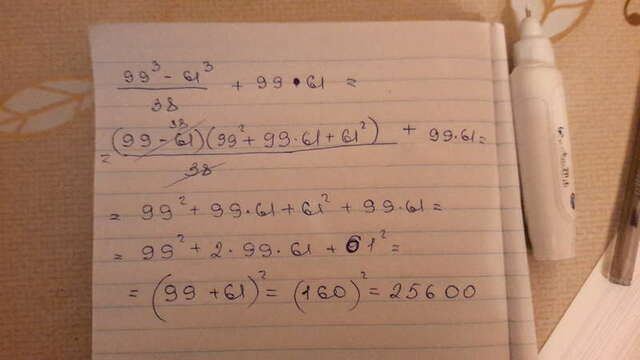 99³ - 61³ / 38 + 99 • 61 =
= (99 - 61)(99² + 99·61 + 61²) / 38 + 99·61 =
38
= 99² + 99·61 + 61² + 99·61 =
= 99² + 2·99·61 + 61² =
= (99 + 61)² = (160)² = 25600